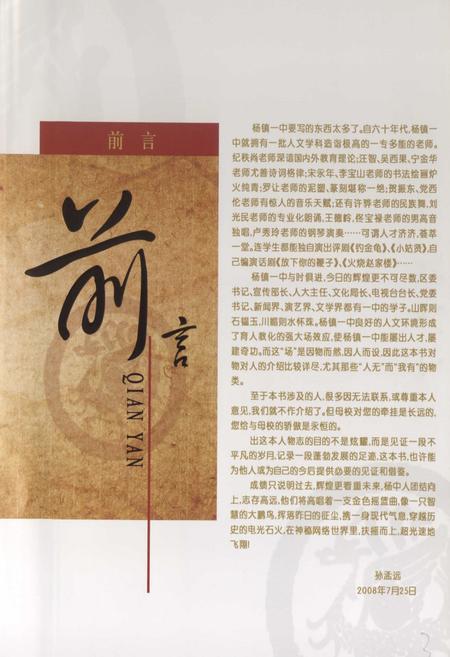 前 言
前
言
QIAN YAN
杨镇一中要写的东西太多了。自六十年代,杨镇一
中就拥有一批人文学科造诣极高的一专多能的老师。
纪秩尚老师深谙国内外教育理论;汪智、吴西果、宁金华
老师尤善诗词格律;宋永年、李宝山老师的书法绘画炉
火纯青;罗让老师的泥塑、篆刻堪称一绝;贾振东、党西
伦老师有惊人的音乐天赋;还有许骅老师的民族舞,刘
光民老师的专业化朗诵,王德龄、佟宝禄老师的男高音
独唱,卢秀玲老师的钢琴演奏……可谓人才济济,荟萃
一堂。连学生都能独自演出评剧《钓金龟》、《小姑贤》,自
己编演话剧《放下你的鞭子》、《火烧赵家楼》……
杨镇一中与时俱进,今日的辉煌更不可尽数,区委
书记、宣传部长、人大主任、文化局长、电视台台长、党委
书记、新闻界、演艺界、文学界都有一中的学子。山晖则
石韫玉,川媚则水怀珠。杨镇一中良好的人文环境形成
了育人教化的强大场效应,使杨镇一中能屡出人才、屡
建奇功。而这“场”是因物而然,因人而设,因此这本书对
物对人的介绍比较详尽,尤其那些“人无”而“我有”的物
类。
至于本书涉及的人,很多因无法联系,或尊重本人
意见,我们就不作介绍了。但母校对您的牵挂是长远的,
您给与母校的骄傲是永恒的。
出这本人物志的目的不是炫耀,而是见证一段不
平凡的岁月,记录一段蓬勃发展的足迹,这本书,也许能
为他人或为自己的今后提供必要的见证和借鉴。
成绩只说明过去,辉煌更看重未来,杨中人团结向
上,志存高远,他们将高唱着一支金色摇篮曲,像一只智
慧的大鹏鸟,挥落昨日的征尘,携一身现代气息,穿越历
史的电光石火,在神秘网络世界里,扶摇而上,超光速地
飞翔!
孙孟远
2008年7月25日
3